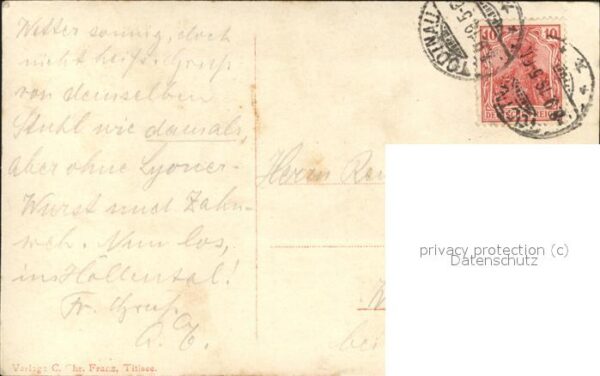 Wetter sonnig, doch
nicht heiß. Gruß
von demselben
Stuhl wie damals,
aber ohne Lyoner-
Wurst und Zahn-
weh. Nun los,
ins Höllental!
Fr. Gruß
TODTNAU
10 10
DEUTSCHES REICH
Herrn
privacy protection (c)
Datenschutz
Verlag: C. Chr. Franz, Titisee.